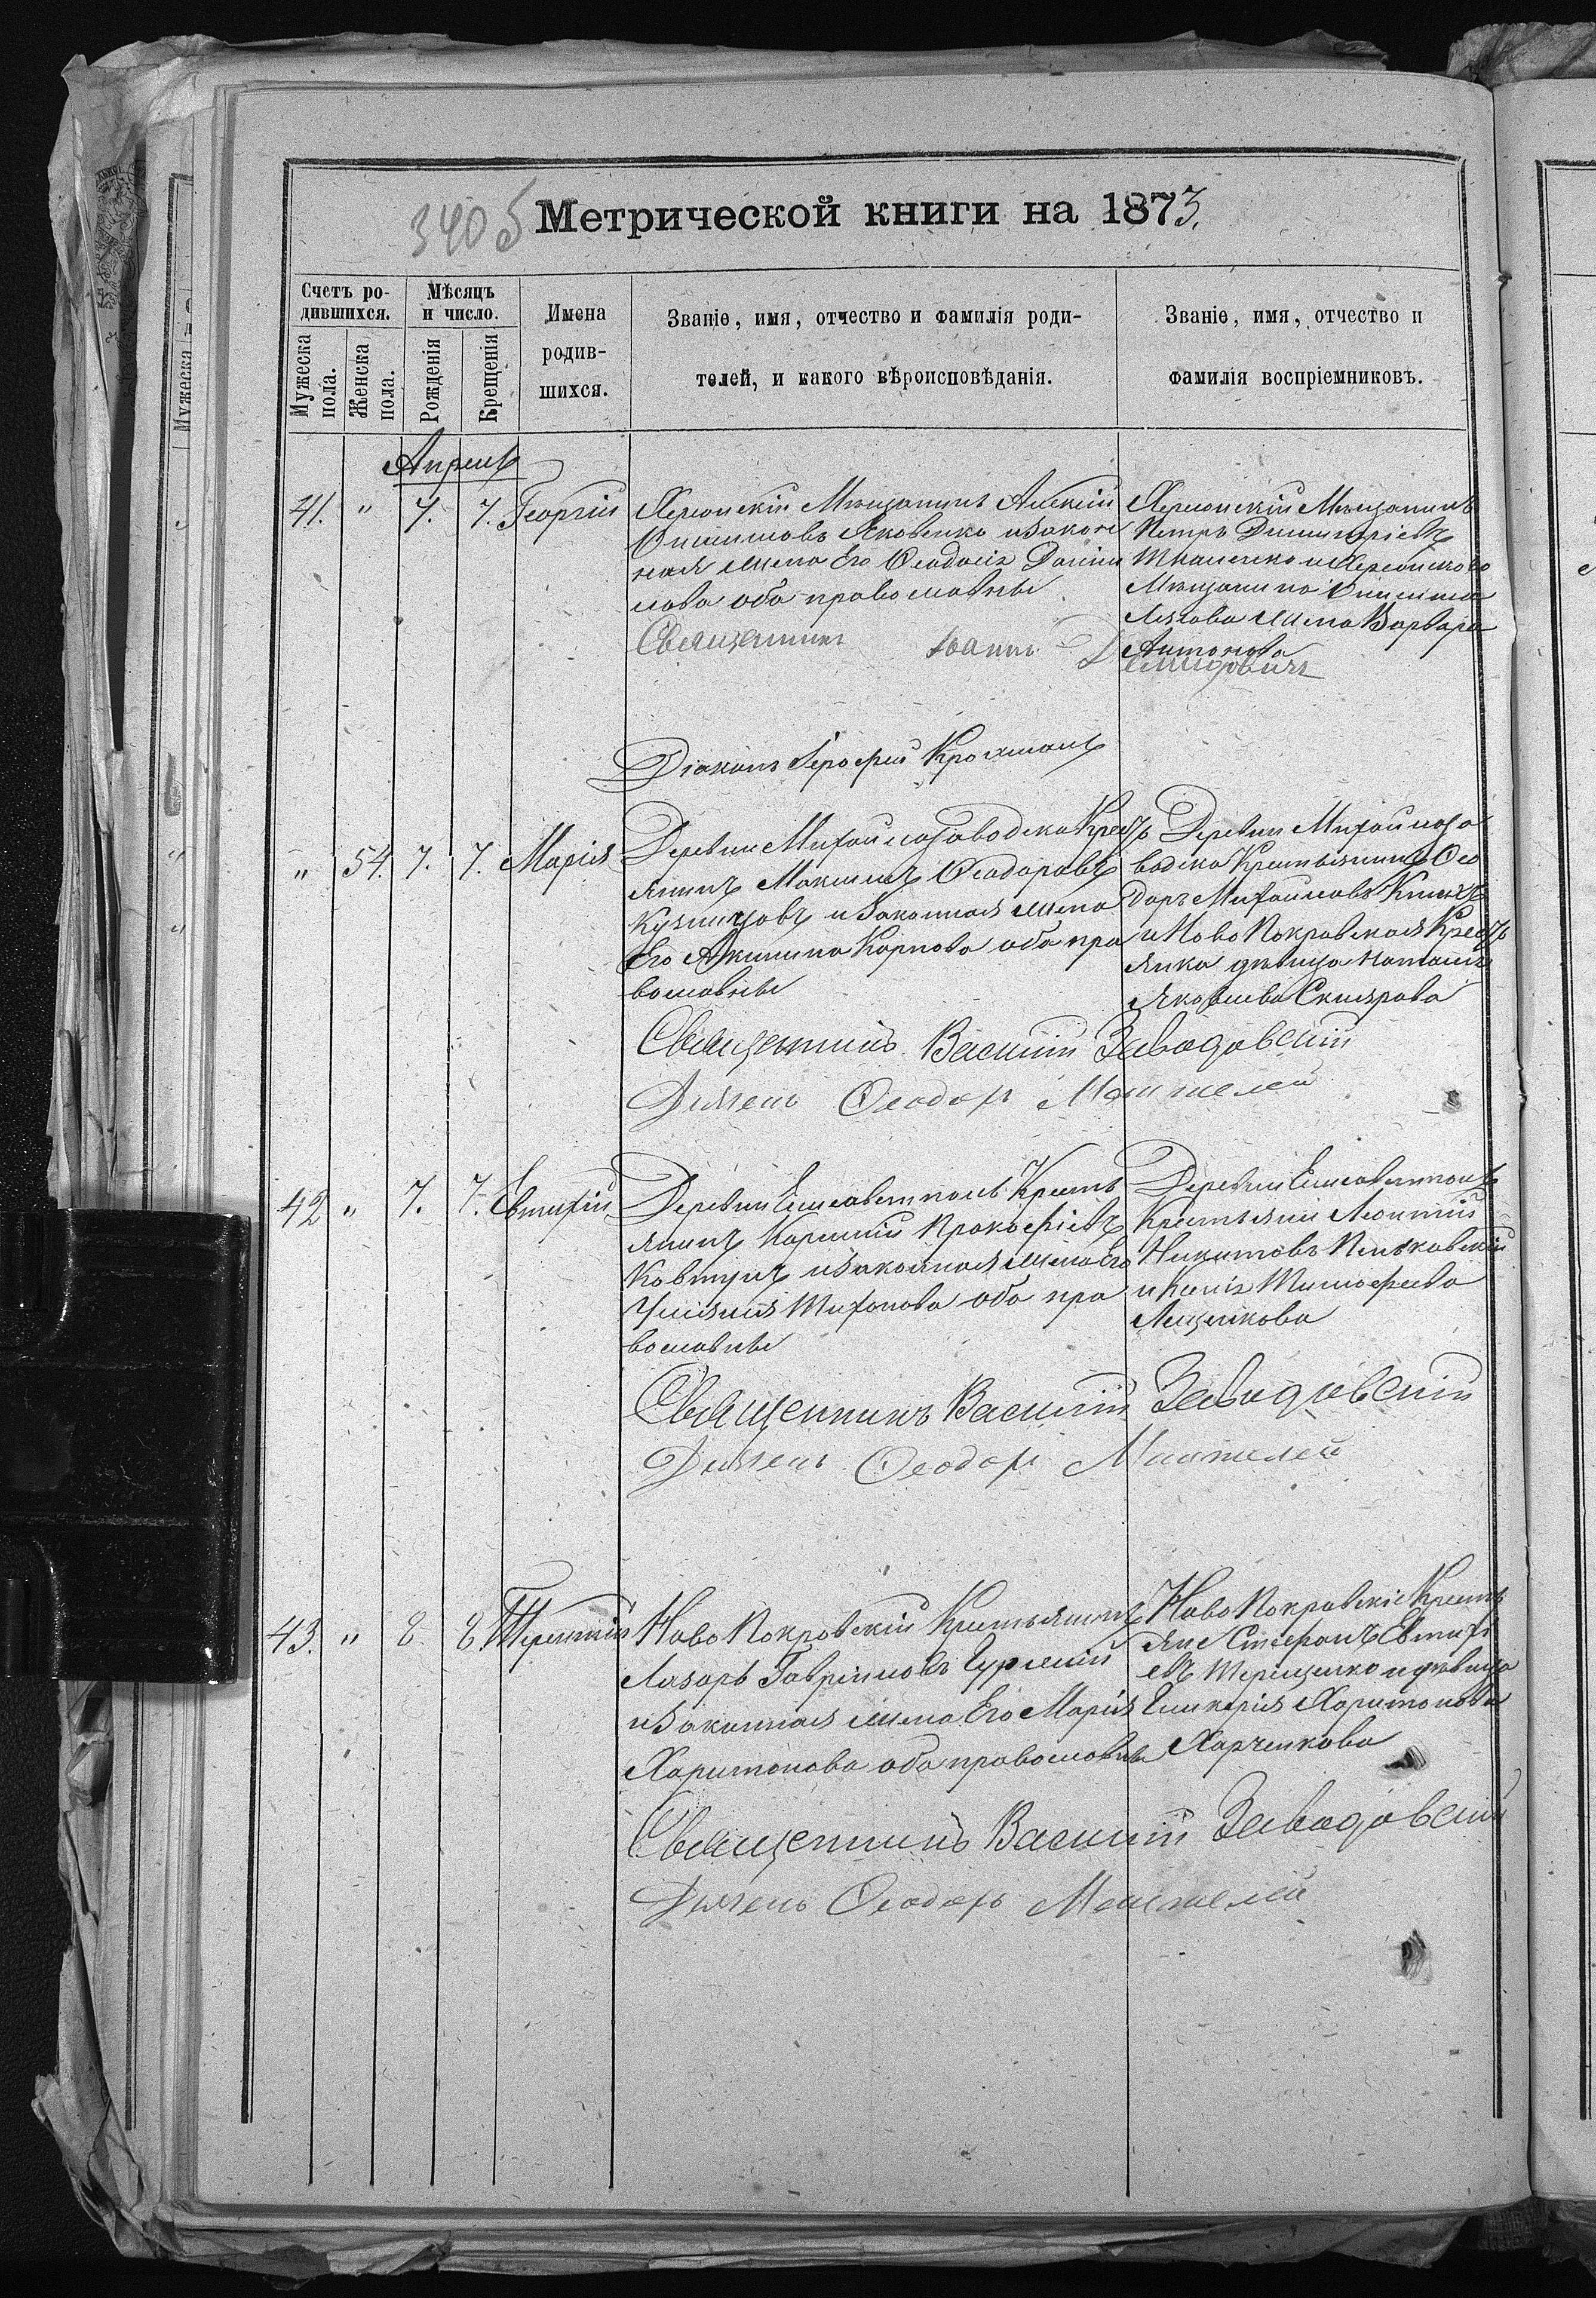 3405 Метрической книги на 1873.
Счетъ ро-
дившихся.
Мужеска
пола.
Женска
пола.
Мѣсяцъ
и число.
Рожденія
Крещенія
Имена
родив-
шихся.
Званіе, имя, отчество и фамилія роди-
телей, и какого вѣроисповѣданія.
Званіе, имя, отчество и
фамилія воспріемниковъ.
Апрель
41. " 7. 7. Георгій
Херсонскій Мѣщанинъ Алексій
Яковенко изакон
ная жена Его Ѳеодосія Даніи
лова оба православные
Священникъ Іоаннъ
Діаконъ Іероѳей
Херсонскій Мѣщанинъ
Петръ Димитріевъ
Ткаченко иХерсонскаго
Мѣщанина
жена Варвара
Антонова
" 54. 7. 7. Марія
Деревни Михайлозаводска Крестъ
янинъ Максимъ Ѳеодоровъ
Кузницовъ изаконная жена
Его Акилина Карпова оба пра
вославные
Священникъ Василій Заводовскій
Дьячекъ Ѳеодоръ
Деревни Михайлоза
водска Крестьянинъ Ѳео
доръ Михайловъ
и Ново Покровская Крестъ
янка дѣвица Наталія
Яковлева Склярова
42 " 7. 7. Евтихій
Деревни Елисаветполь Крестъ
янинъ Корнилій Прокофіевъ
Ковтунъ изаконная жена Его
Уліянія Тихонова оба пра
вославные
Священникъ Василій Заводовскій
Дьячекъ Ѳеодоръ
Деревни Елисаветполь
Крестьяни Леонтій
Никитовъ
иКсенія Тимофеева
Лещенкова
43. " 8. 8. Терентій
Ново Покровскій Крестьянинъ
Лазарь Гавріиловъ Гурскій
изаконная жена Его Марія
Харитонова оба православные
Священникъ Василій Заводовскій
Дьячекъ Ѳеодоръ
Ново Покровскіе Кресть
яне Стефанъ Евтихі
евъ Терещенко и дѣвица
Гликерія Харитонова
Харченкова
Мужеска